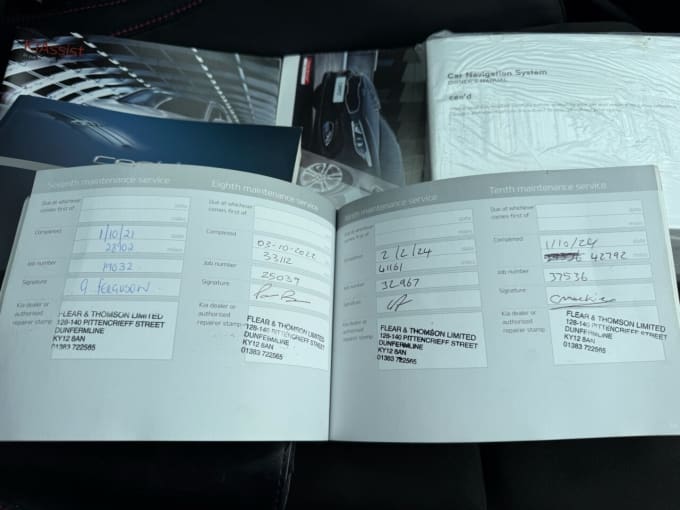 Kia Assist
Car Navigation System
OWNER'S MANUAL
cee'd
Seventh maintenance service
Due at whichever
comes first of
date
miles
Completed
1/10/21
date
28902
miles
Job number
19032
Signature
G Ferguson
Kia dealer or
authorised
repairer stamp
FLEAR & THOMSON LIMITED
128-140 PITTENCRIEFF STREET
DUNFERMLINE
KY12 8AN
01383 722565
Eighth maintenance service
Due at whichever
comes first of
date
miles
Completed
03-10-2022
33112
Job number
25039
Signature
Kia dealer or
authorised
repairer stamp
FLEAR & THOMSON LIMITED
128-140 PITTENCRIEFF STREET
DUNFERMLINE
KY12 8AN
01383 722565
Ninth maintenance service
Due at whichever
comes first of
date
miles
Completed
2/2/24
date
41161
miles
Job number
32967
Signature
Kia dealer or
authorised
repairer stamp
FLEAR & THOMSON LIMITED
128-140 PITTENCRIEFF STREET
DUNFERMLINE
KY12 8AN
01383 722565
Tenth maintenance service
Due at whichever
comes first of
date
miles
Completed
1/10/24
date
42792
miles
Job number
37536
Signature
Kia dealer or
authorised
repairer stamp
FLEAR & THOMSON LIMITED
128-140 PITTENCRIEFF STREET
DUNFERMLINE
KY12 8AN
01383 722565